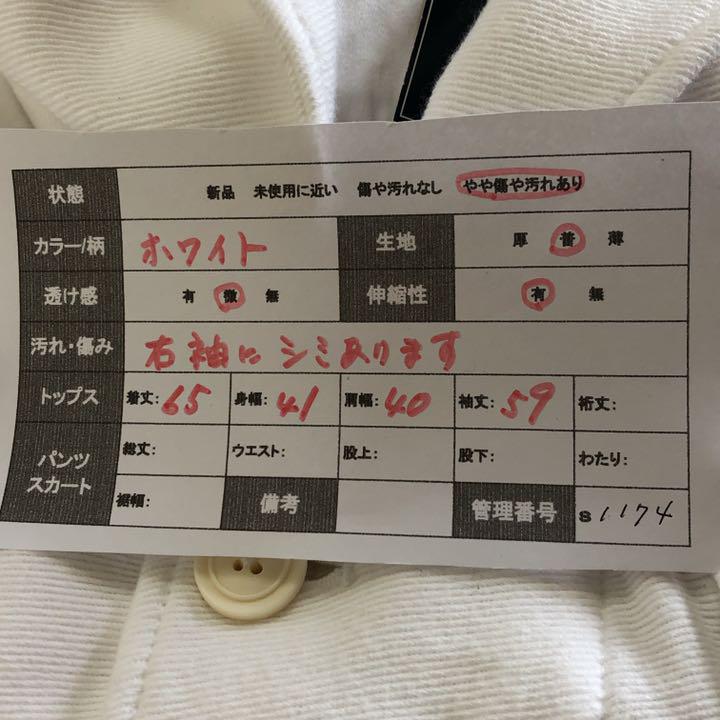 状態 新品 未使用に近い 傷や汚れなし やや傷や汚れあり
カラー/柄 ホワイト 生地 厚 普 薄
透け感 有 微 無 伸縮性 有 無
汚れ・傷み 右袖にシミあります
トップス 着丈:65 身幅:41 肩幅:40 袖丈:59 裄丈:
パンツ
スカート
総丈: ウエスト: 股上: 股下: わたり:
裾幅: 備考 管理番号 s1174